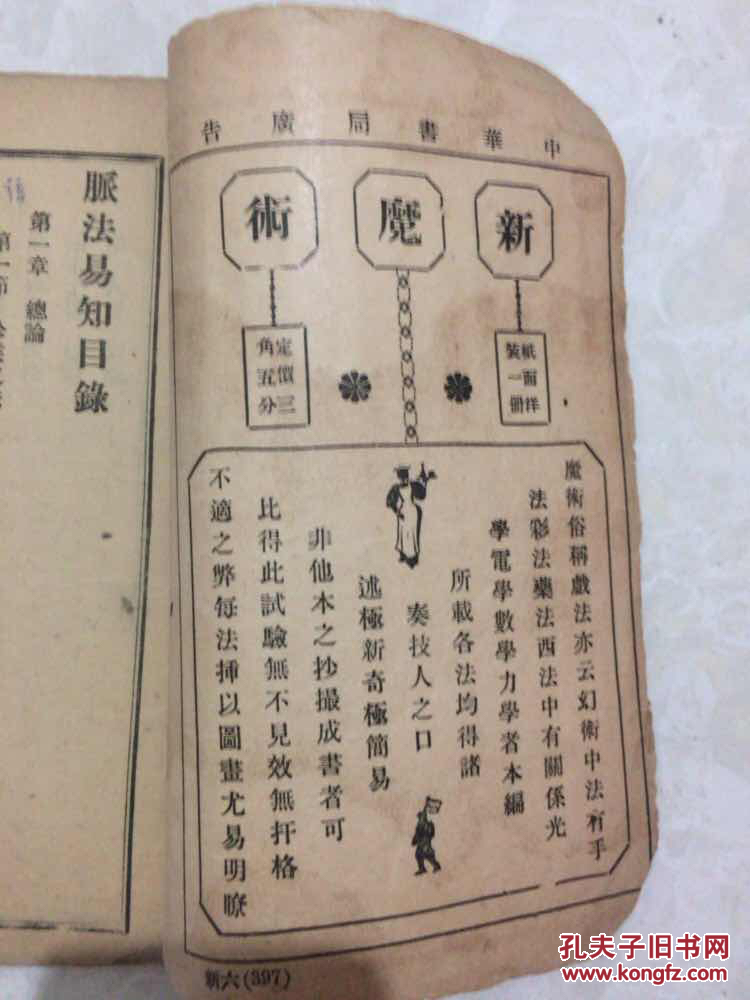 中華書局廣告
新魔術
紙面洋
裝一冊
定價三
角五分
魔術俗稱戲法亦云幻術中法有手
法彩法藥法西法中有關係光
學電學數學力學者本編
所載各法均得諸
奏技人之口
述極新奇極簡易
非他本之抄撮成書者可
比得此試驗無不見效無扞格
不適之弊每法揷以圖畫尤易明瞭
新六(397)
脈法易知目錄
第一章 總論
第一節
孔夫子旧书网
kongfz.com